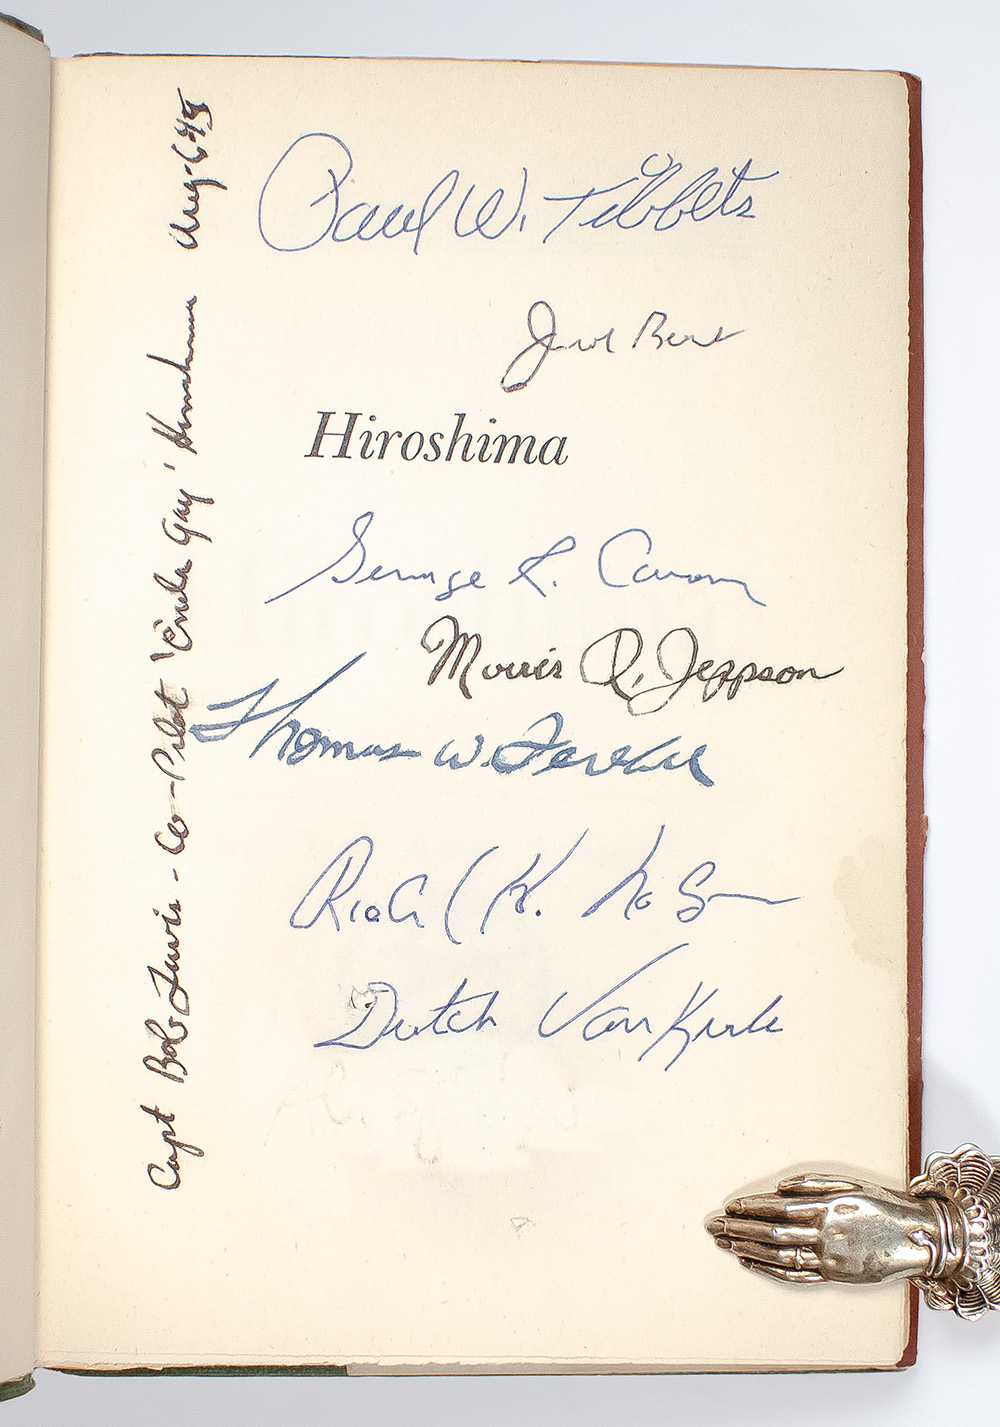 Paul W. Tibbets
Hiroshima
George R. Caron
Morris R. Jeppson
Thomas W. Ferebee
Richard K. Nelson
Dutch Van Kirk
Capt Bob Lewis - Co-Pilot 'Enola Gay' Hiroshima Aug-6-45